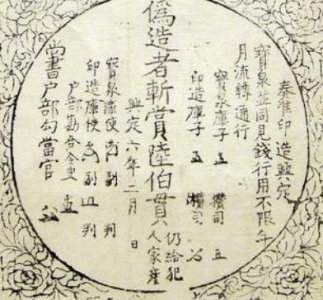 奏准印造興定
寶泉並同見錢行用不限年
月流轉通行
寶泉庫子 攢司
印造庫子 攢司
偽造者斬賞陸伯貫
仍給犯
人家産
興定六年二月 日
寶泉庫使 副 判
印造庫使 副 判
户部勘合令史
尚書户部勾當官